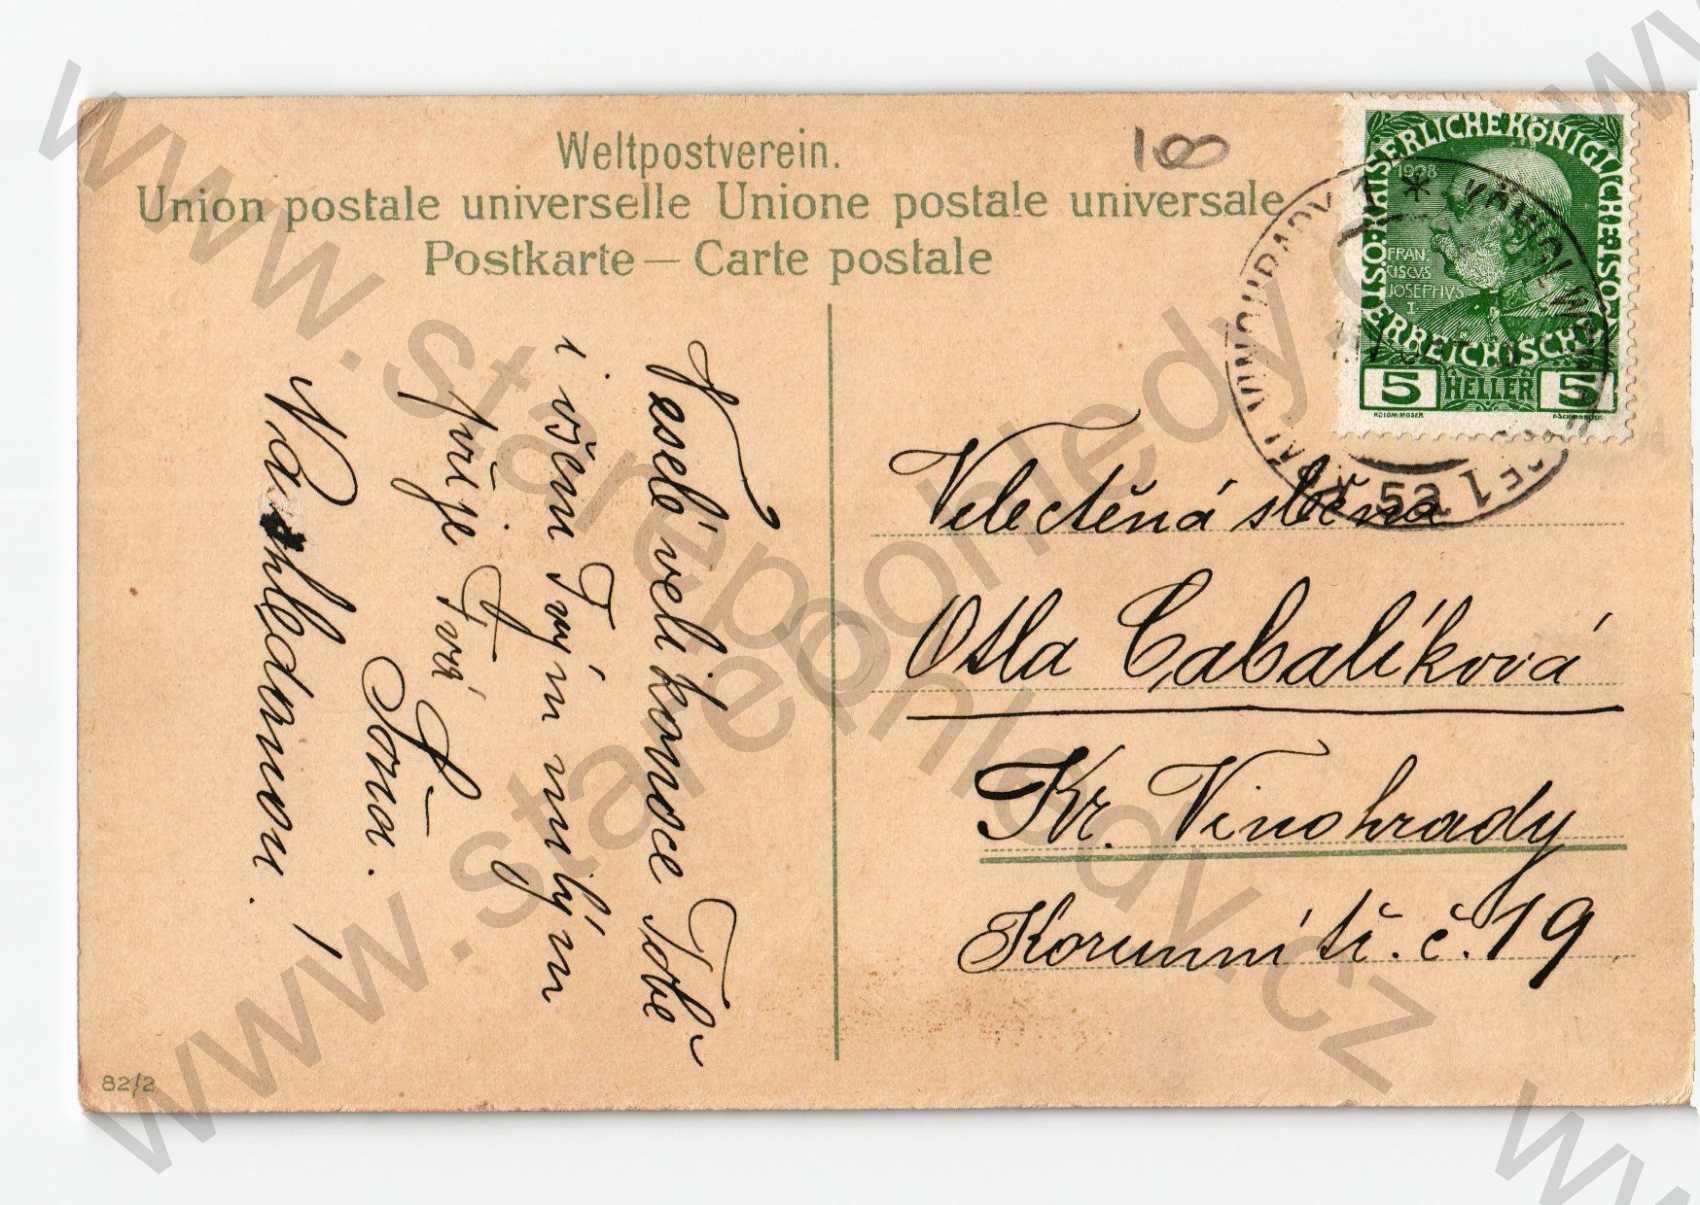 Weltpostverein.
Union postale universelle Unione postale universale
Postkarte — Carte postale
18
KAISERLICHE KÖNIGLICHE
ÖSTERREICHISCHE
1908
FRAN-
CISCVS
JOSEPHVS
I.
5 HELLER 5
Veselé velikonoce Tobě
i všem Tvým milým
přije Tvá
Soňa.
Na shledanou!
Velectěná slečna
Otla Cabalíková
Kr. Vinohrady
Korunní tř. č. 19
82/2
www.starepohledy.cz
www.starepohledy.cz